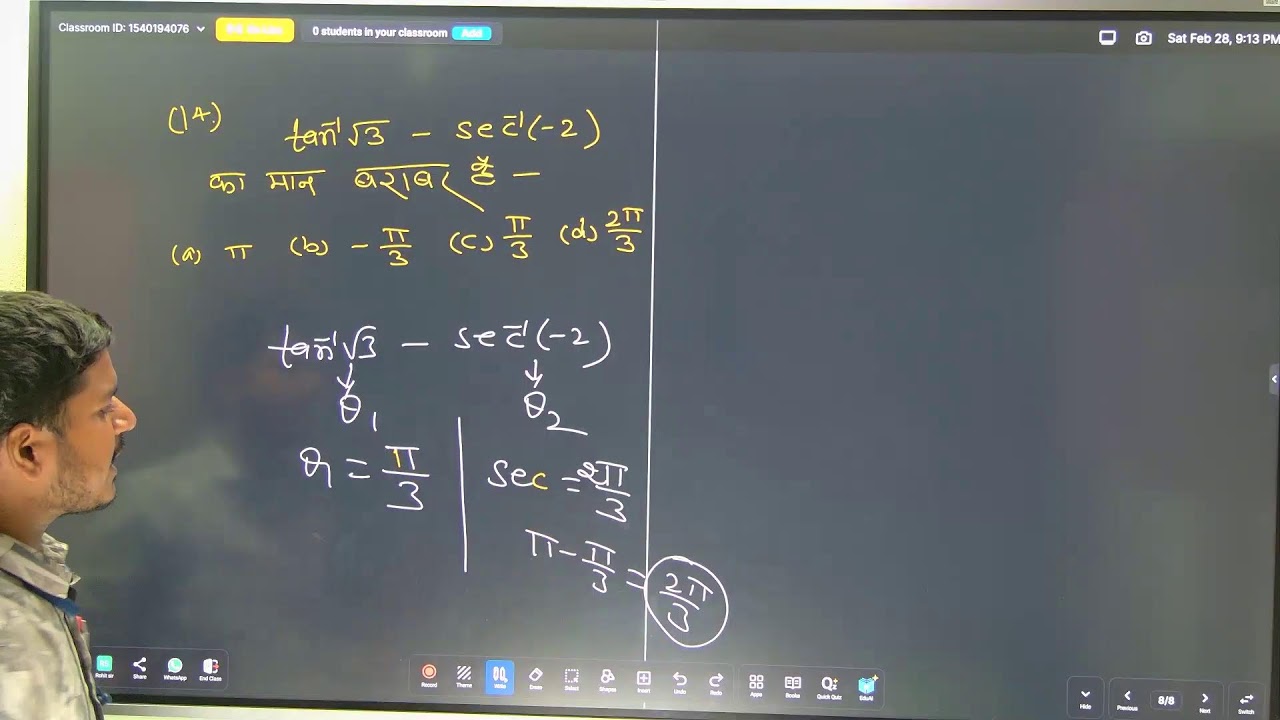 Classroom ID: 1540194076
0 students in your classroom Add
Sat Feb 28, 9:13 PM
(14.) tan⁻¹√3 – sec⁻¹(-2)
का मान बराबर है –
(a) π (b) -π/3 (c) π/3 (d) 2π/3
tan⁻¹√3 – sec⁻¹(-2)
↓ ↓
θ₁ θ₂
= π/3 sec = 2π/3
π - π/3 = 2π/3
Rohit sir Share WhatsApp End Class
Record Theme Write Erase Select Shapes Insert Undo Redo Apps Books Quick Quiz EduAI
Hide Previous 8/8 Next Switch